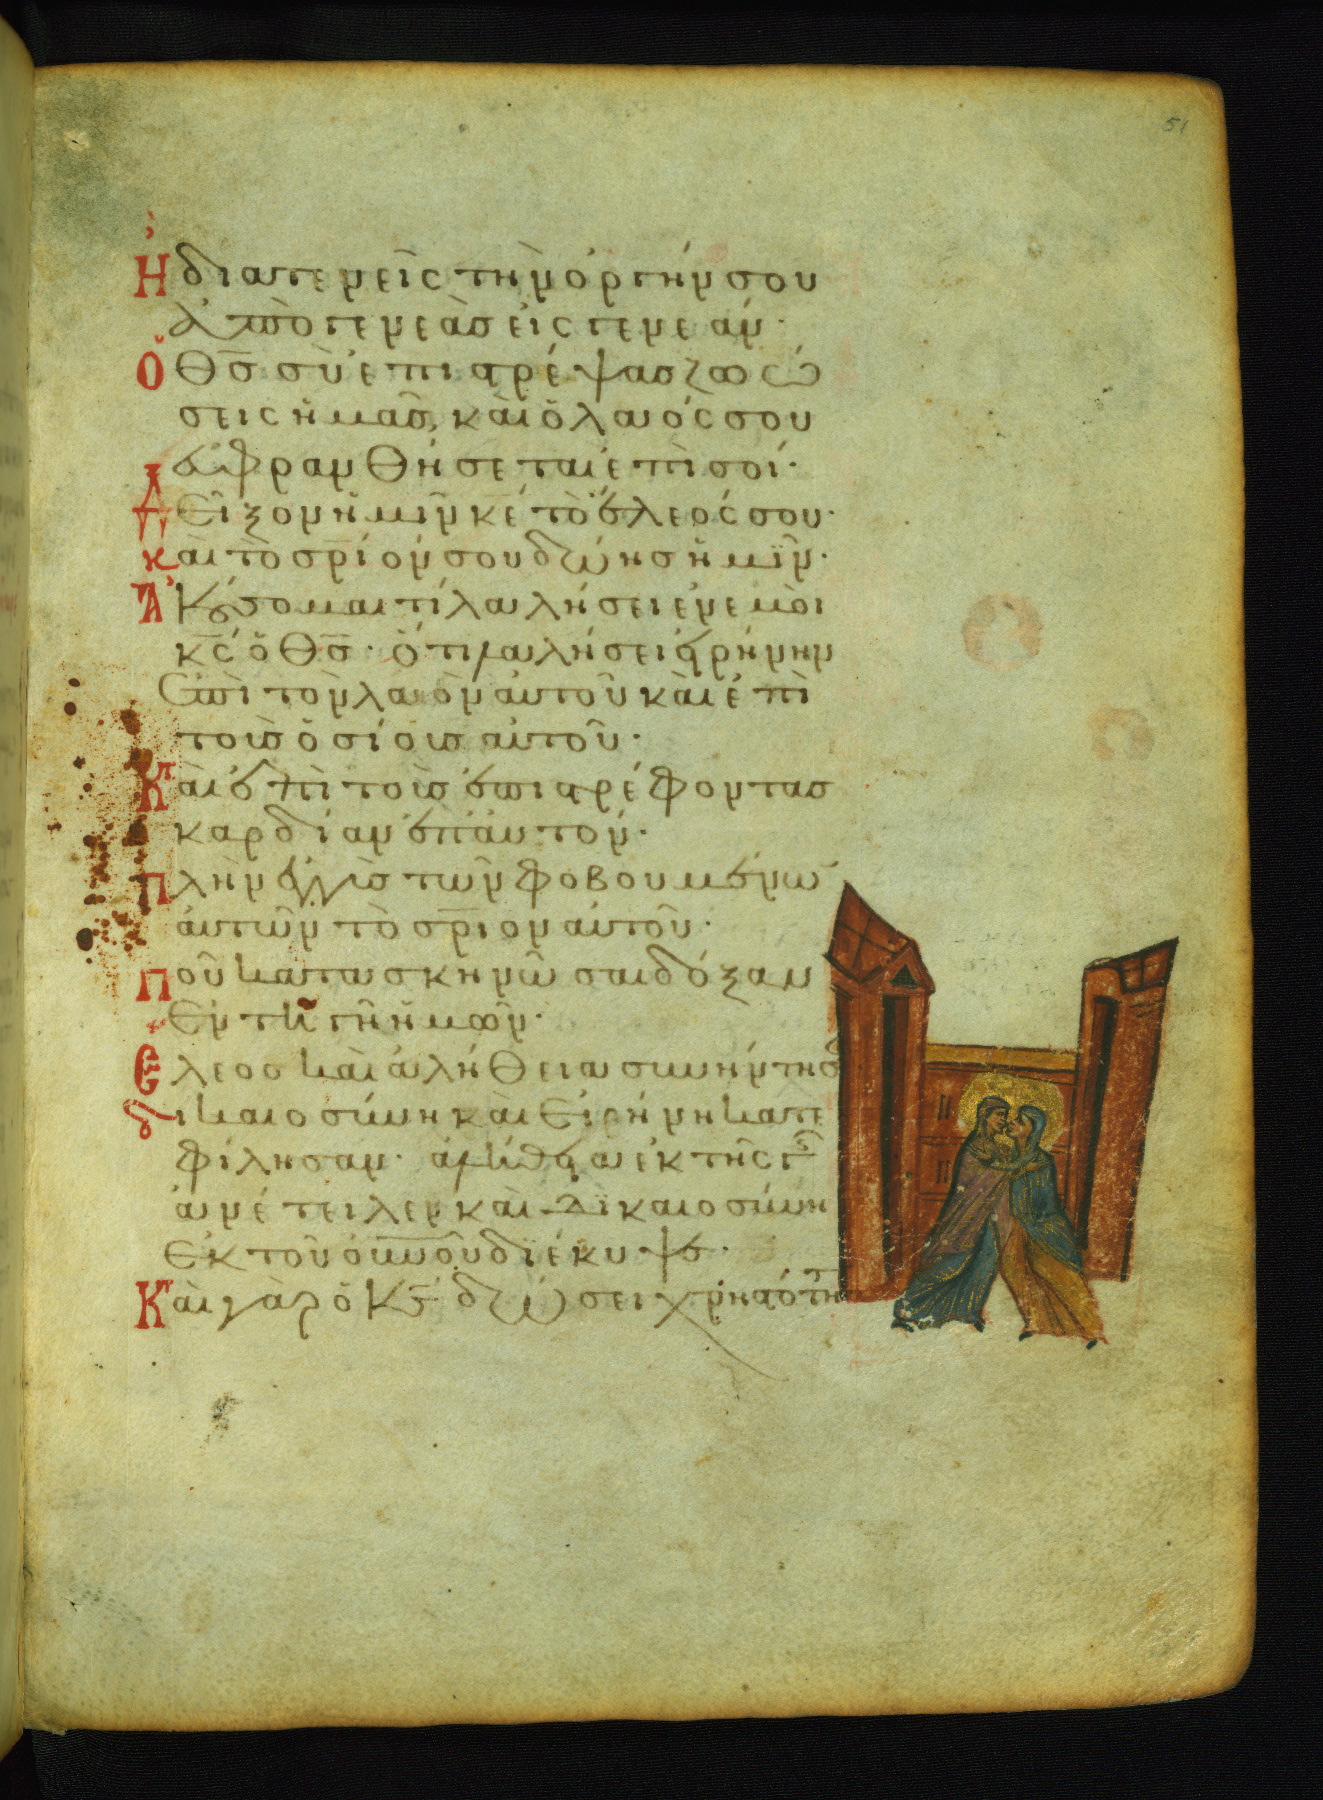 51
Ἢ διατενεῖς τὴν ὀργήν σου
ἀπὸ γενεὰσ εἰς γενεάν·
Ὁ θ̅σ̅ σὺ ἐπιστρέψασ ζωώ
σεις ἡμᾶσ, καὶ ὁ λαός σου
εὐφρανθήσεται ἐπὶ σοί·
Δεῖξον ἡμῖν κ̅ε̅ τὸ ἔλεός σου·
καὶ τὸ σ̅ρ̅ιόν σου δώησ ἡμῖν·
Ἀκούσομαι τί λαλήσει ἐν ἐμοὶ
κ̅ς̅ ὁ θ̅σ̅· ὅτι λαλήσει εἰρήνην
ἐπὶ τὸν λαὸν αὐτοῦ καὶ ἐπὶ
τοὺσ ὁσίουσ αὐτοῦ·
Καὶ ἐπὶ τοὺσ ἐπιστρέφοντασ
καρδίαν ἐπ' αὐτόν·
πλὴν ἐγγὺσ τῶν φοβουμένω̅
αὐτὸν τὸ σ̅ρ̅ιον αὐτοῦ·
Ποῦ κατασκηνῶσαι δόξαν
ἐν τῆ γῆ ἡμῶν·
Ἔλεοσ καὶ ἀλήθεια συνήντησα̅
δικαιοσύνη καὶ εἰρήνη κατε
φίλησαν· ἀλήθεια ἐκ τῆς γῆσ
ἀνέτειλεν καὶ δικαιοσύνη
ἐκ τοῦ ο̅υ̅ν̅οῦ διέκυψε·
Καὶ γὰρ ὁ κ̅ς̅ δώσει χρηστότητα